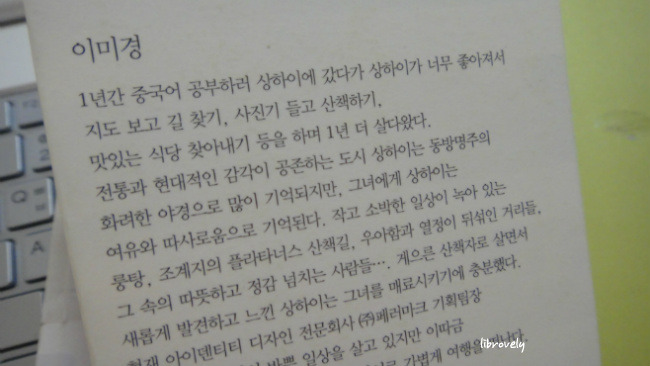 이미경
1년간 중국어 공부하러 상하이에 갔다가 상하이가 너무 좋아져서
지도 보고 길 찾기, 사진기 들고 산책하기,
맛있는 식당 찾아내기 등을 하며 1년 더 살다왔다.
전통과 현대적인 감각이 공존하는 도시 상하이는 동방명주의
화려한 야경으로 많이 기억되지만, 그녀에게 상하이는
여유와 따사로움으로 기억된다. 작고 소박한 일상이 녹아 있는
롱탕, 조계지의 플라타너스 산책길, 우아함과 열정이 뒤섞인 거리들,
그 속의 따뜻하고 정감 넘치는 사람들…. 게으른 산책자로 살면서
새롭게 발견하고 느낀 상하이는 그녀를 매료시키기에 충분했다.
현재 아이덴티티 디자인 전문회사 ㈜페러마크 기획팀장
바쁜 일상을 살고 있지만 이따금
가볍게 여행을
librovely